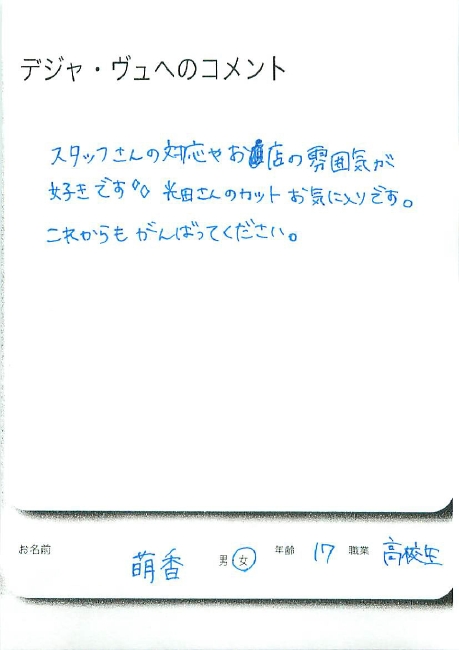 デジャ・ヴュへのコメント
スタッフさんの対応やお店の雰囲気が
好きです。米田さんのカットお気に入りです。
これからもがんばってください。
お名前 萌香 男 女 年齢 17 職業 高校生